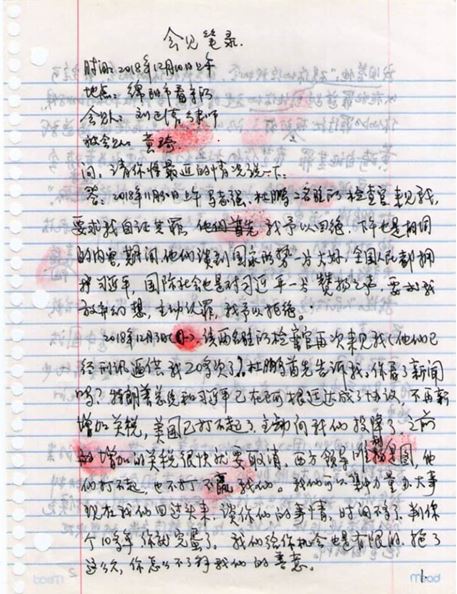 会见笔录
时间：2018年12月10日上午
地点：绵阳市看守所
会见人：刘正清律师
被会见人：黄琦
问：请你将最近的情况说一下。
答：2018年11月30日上午 强、杜鹏2名姓的检察官来见我，
要求我自证其罪，他们首先，我予以回绝，下午也是相同
的内容，期间，他们谈到国家形势一片大好，全国人民都拥
护习近平，国际社会也是对习近平一片赞扬之声，要我
放弃幻想，主动认罪，我予以拒绝。
2018年12月3日（ ），该两名姓的检察官再次来见我（他们已
经刑讯逼供我20多次了），杜鹏首先告诉我，你看了新闻
吗？特朗普总统和习近平已在阿根廷达成了协议，不再新
增加关税，美国已打不起了，主动向我们投降了，之前
的增加的关税很快就要取消，西方领导 美国，他
们打不起，也不打不赢我们。我们可以集中力量办大事
现在我们回过头来，谈你们的事情，时间不多了，判你
个10多年你就完蛋了。我们给你机会也是有限的，拒了
这么久，你怎么不了解我们的善意。
Mead
1